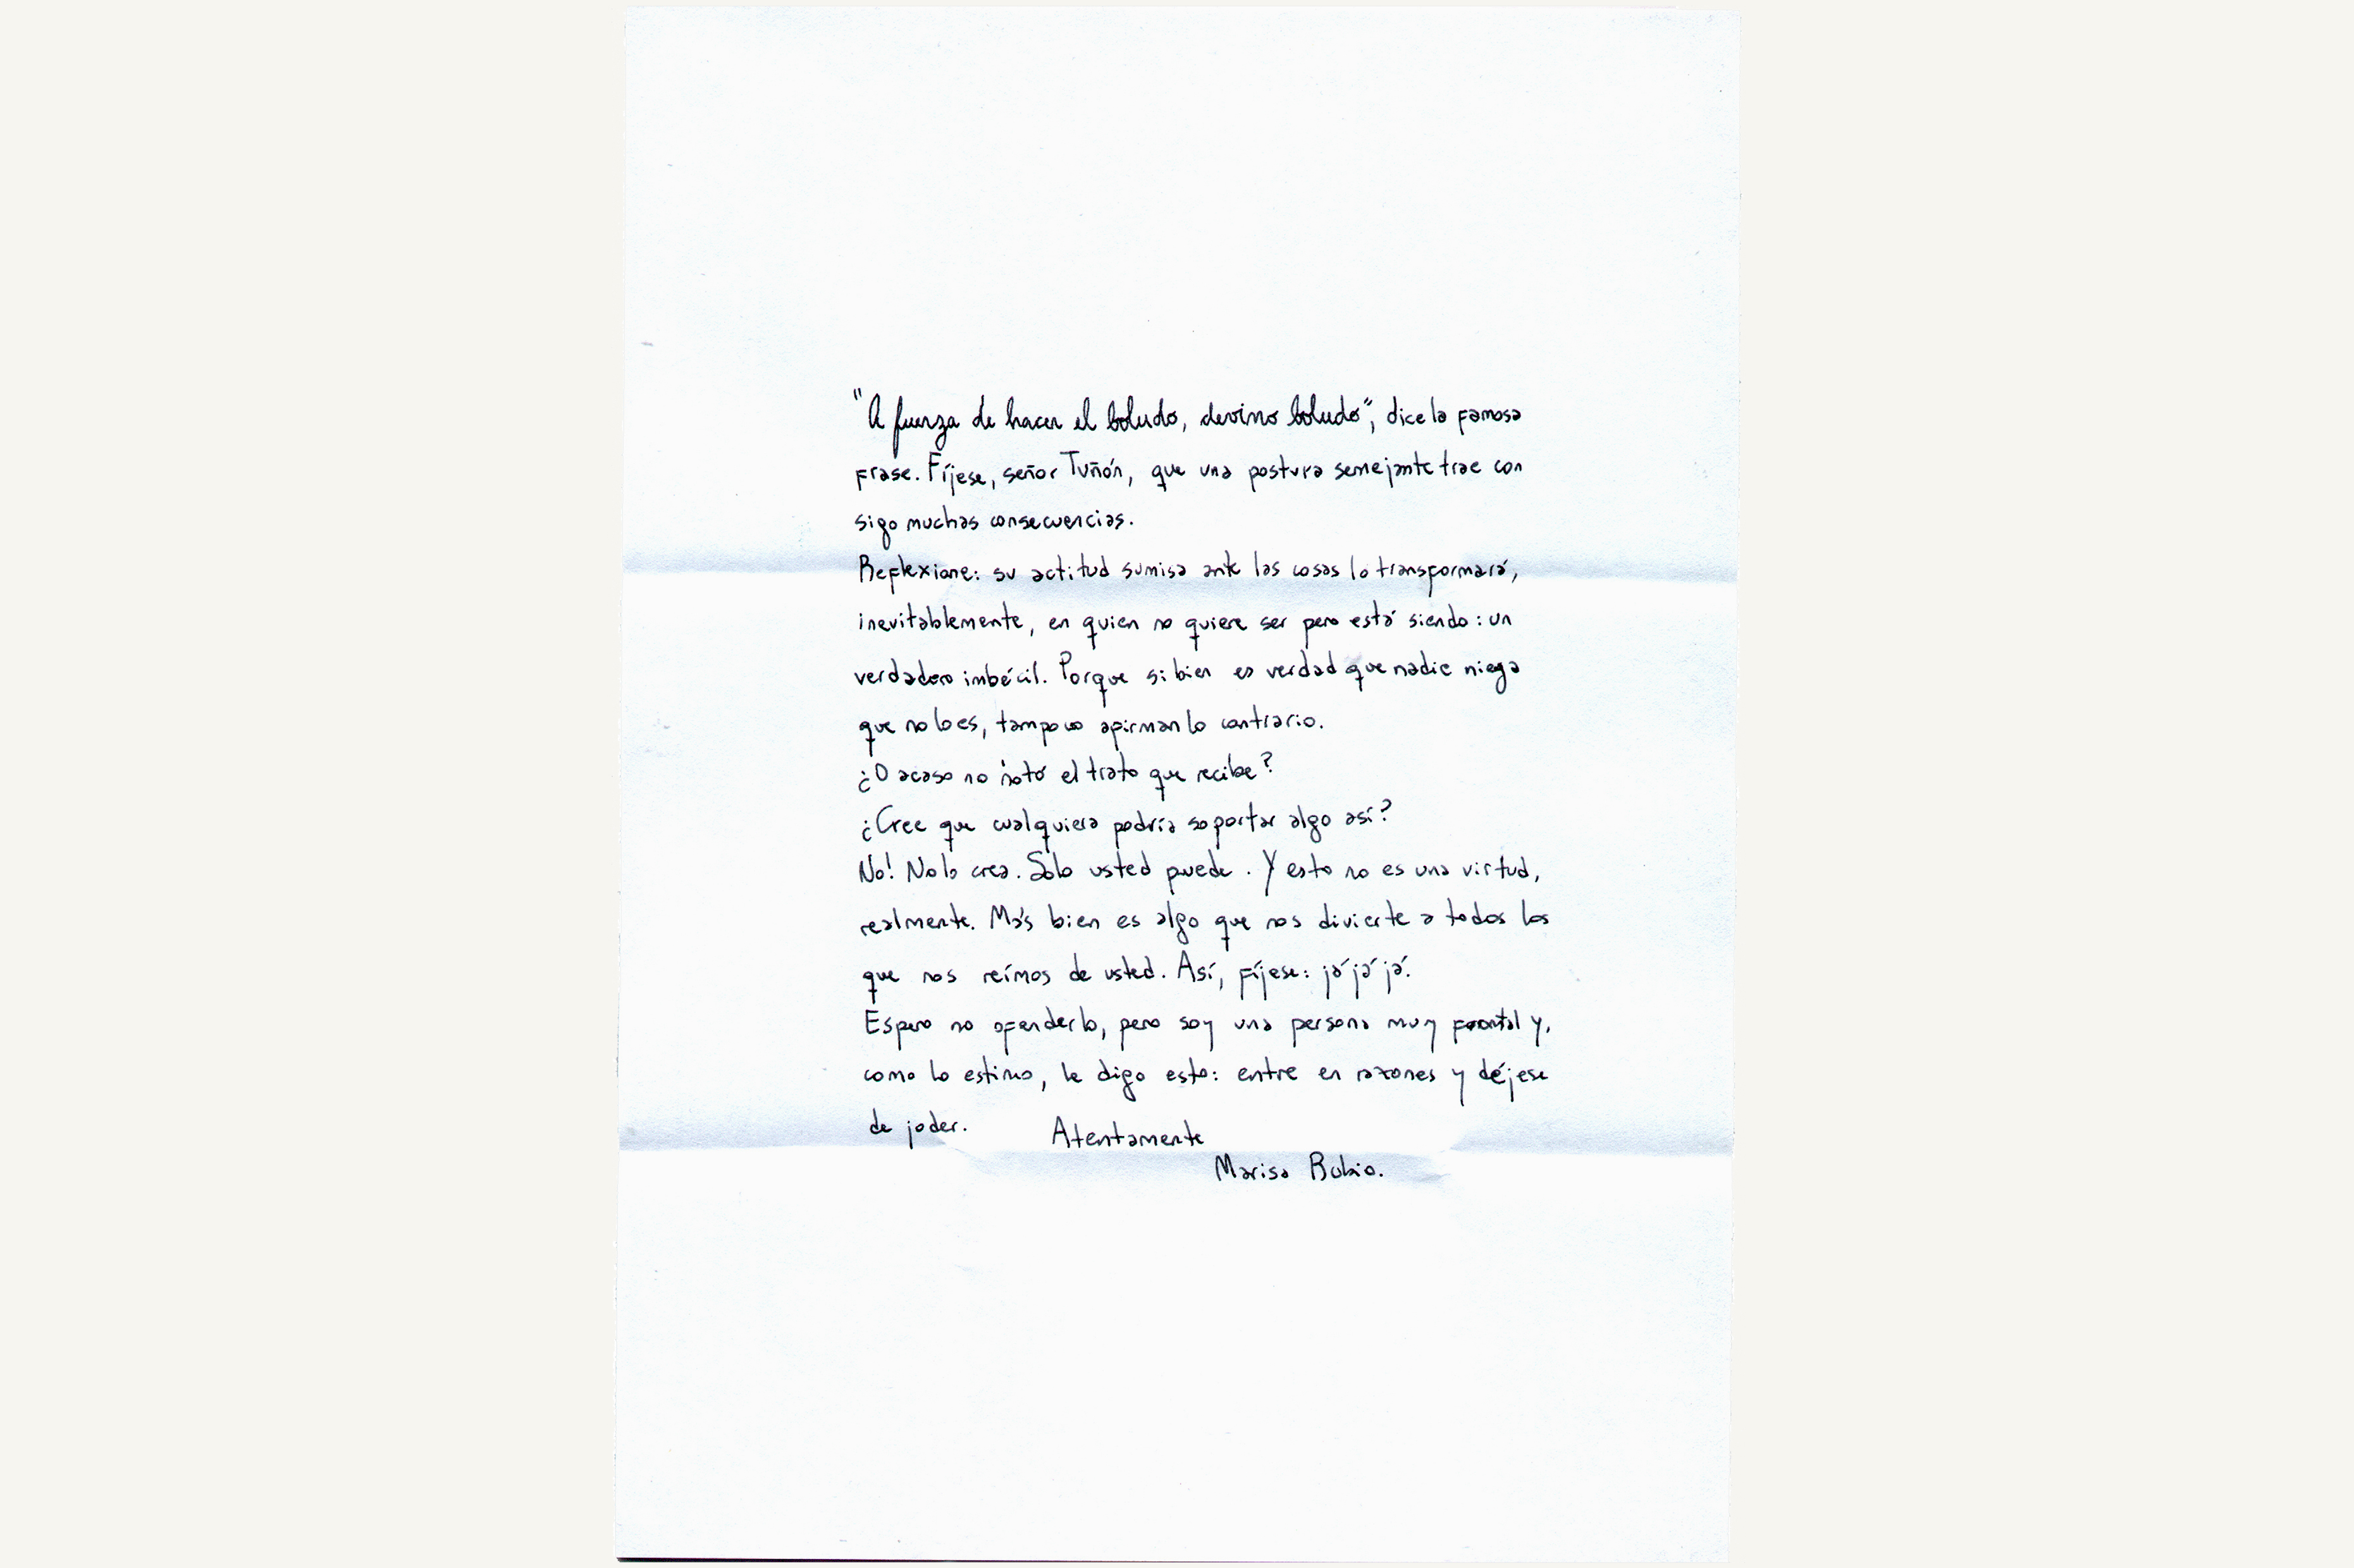 "A fuerza de hacer el boludo, devino boludo", dice la famosa
frase. Fíjese, señor Tuñón, que una postura semejante trae con
sigo muchas consecuencias.
Reflexione: su actitud sumisa ante las cosas lo transformará,
inevitablemente, en quien no quiere ser pero está siendo: un
verdadero imbécil. Porque si bien es verdad que nadie niega
que no lo es, tampoco afirman lo contrario.
¿O acaso no notó el trato que recibe?
¿Cree que cualquiera podría soportar algo así?
No! No lo crea. Sólo usted puede. Y esto no es una virtud,
realmente. Más bien es algo que nos divierte a todos los
que nos reímos de usted. Así, fíjese: já já já.
Espero no ofenderlo, pero soy una persona muy frontal y,
como lo estimo, le digo esto: entre en razones y déjese
de joder. Atentamente
Marisa Rubio.